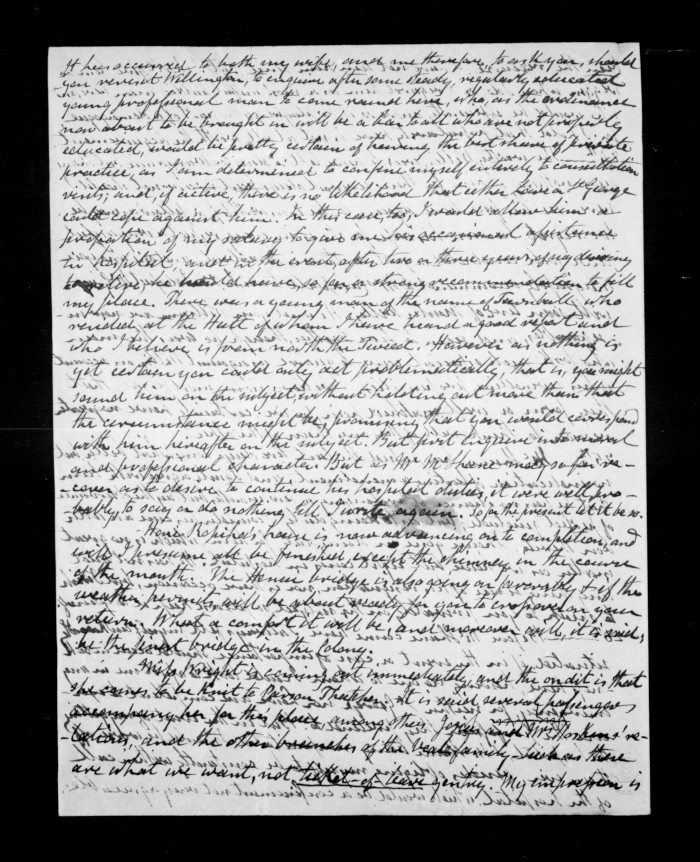 It has occurred to both my wife, and me therefore, to ask you, should
you revisit Wellington, to enquire after some steady, regularly educated
young professional man to come round here, who, as the ordinance
now about to be brought in will be a bar to all who are not properly
educated, would be pretty certain of having the best share of private
practice, as I am determined to confine myself entirely to consultation
visits; and, if active, there is no likelihood that either or St George
could cope against him. In this case, too, I would allow him a
proportion of my salary to give me his occasional assistance
in hospital, and in the event, after two or three years, of my desiring
to retire he would have, so far, a strong recommendation to fill
my place. There was a young man of the name of who
resided at the Hutt of whom I have heard a good report and
who I believe is from north the Tweed. However as nothing is
yet certain you could only act problematically, that is, you might
sound him on the subject, without holding out more than that
the circumstance might be, promising that you would correspond
with him hereafter on the subject. But first enquire into moral
and professional character. But as Mr may so far re-
cover as to desire to continue his hospital duties, it were well pro-
bably, to say or do nothing till I write again. So for the present let it be so.
house is now advancing on to completion, and
will I presume all be finished, except the chimney, in the course
of the month. The bridge is also going on favorably & if the
weather permits, will be about ready for you to cross over on your
return. What a comfort it will be, and moreover will, it is said,
be the best bridge in the Colony.
Miss Wright is coming out immediately, and the on dit is that
she comes to be knit to Parson Thatcher. It is said several passengers
accompany her for this place, among others and Mrs re-
lations, and the other branches of the family. Such as these
are what we want, not ticket-of-leave gentry. My impression is